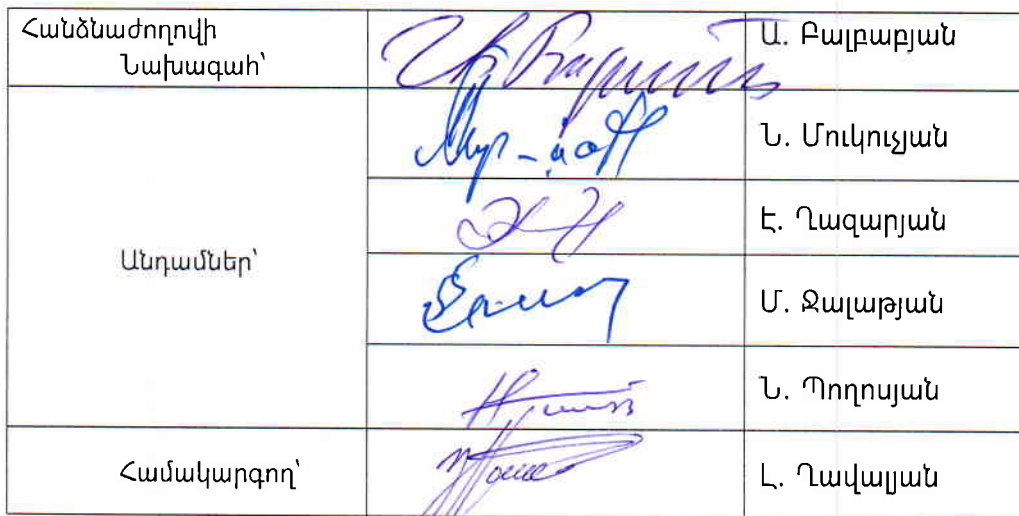 Հանձնաժողովի
Նախագահ՝
Ա. Բալբաբյան
Ն. Մուկուչյան
Է. Ղազարյան
Անդամներ՝
Մ. Ջալաթյան
Ն. Պողոսյան
Համակարգող՝
Լ. Ղավալյան